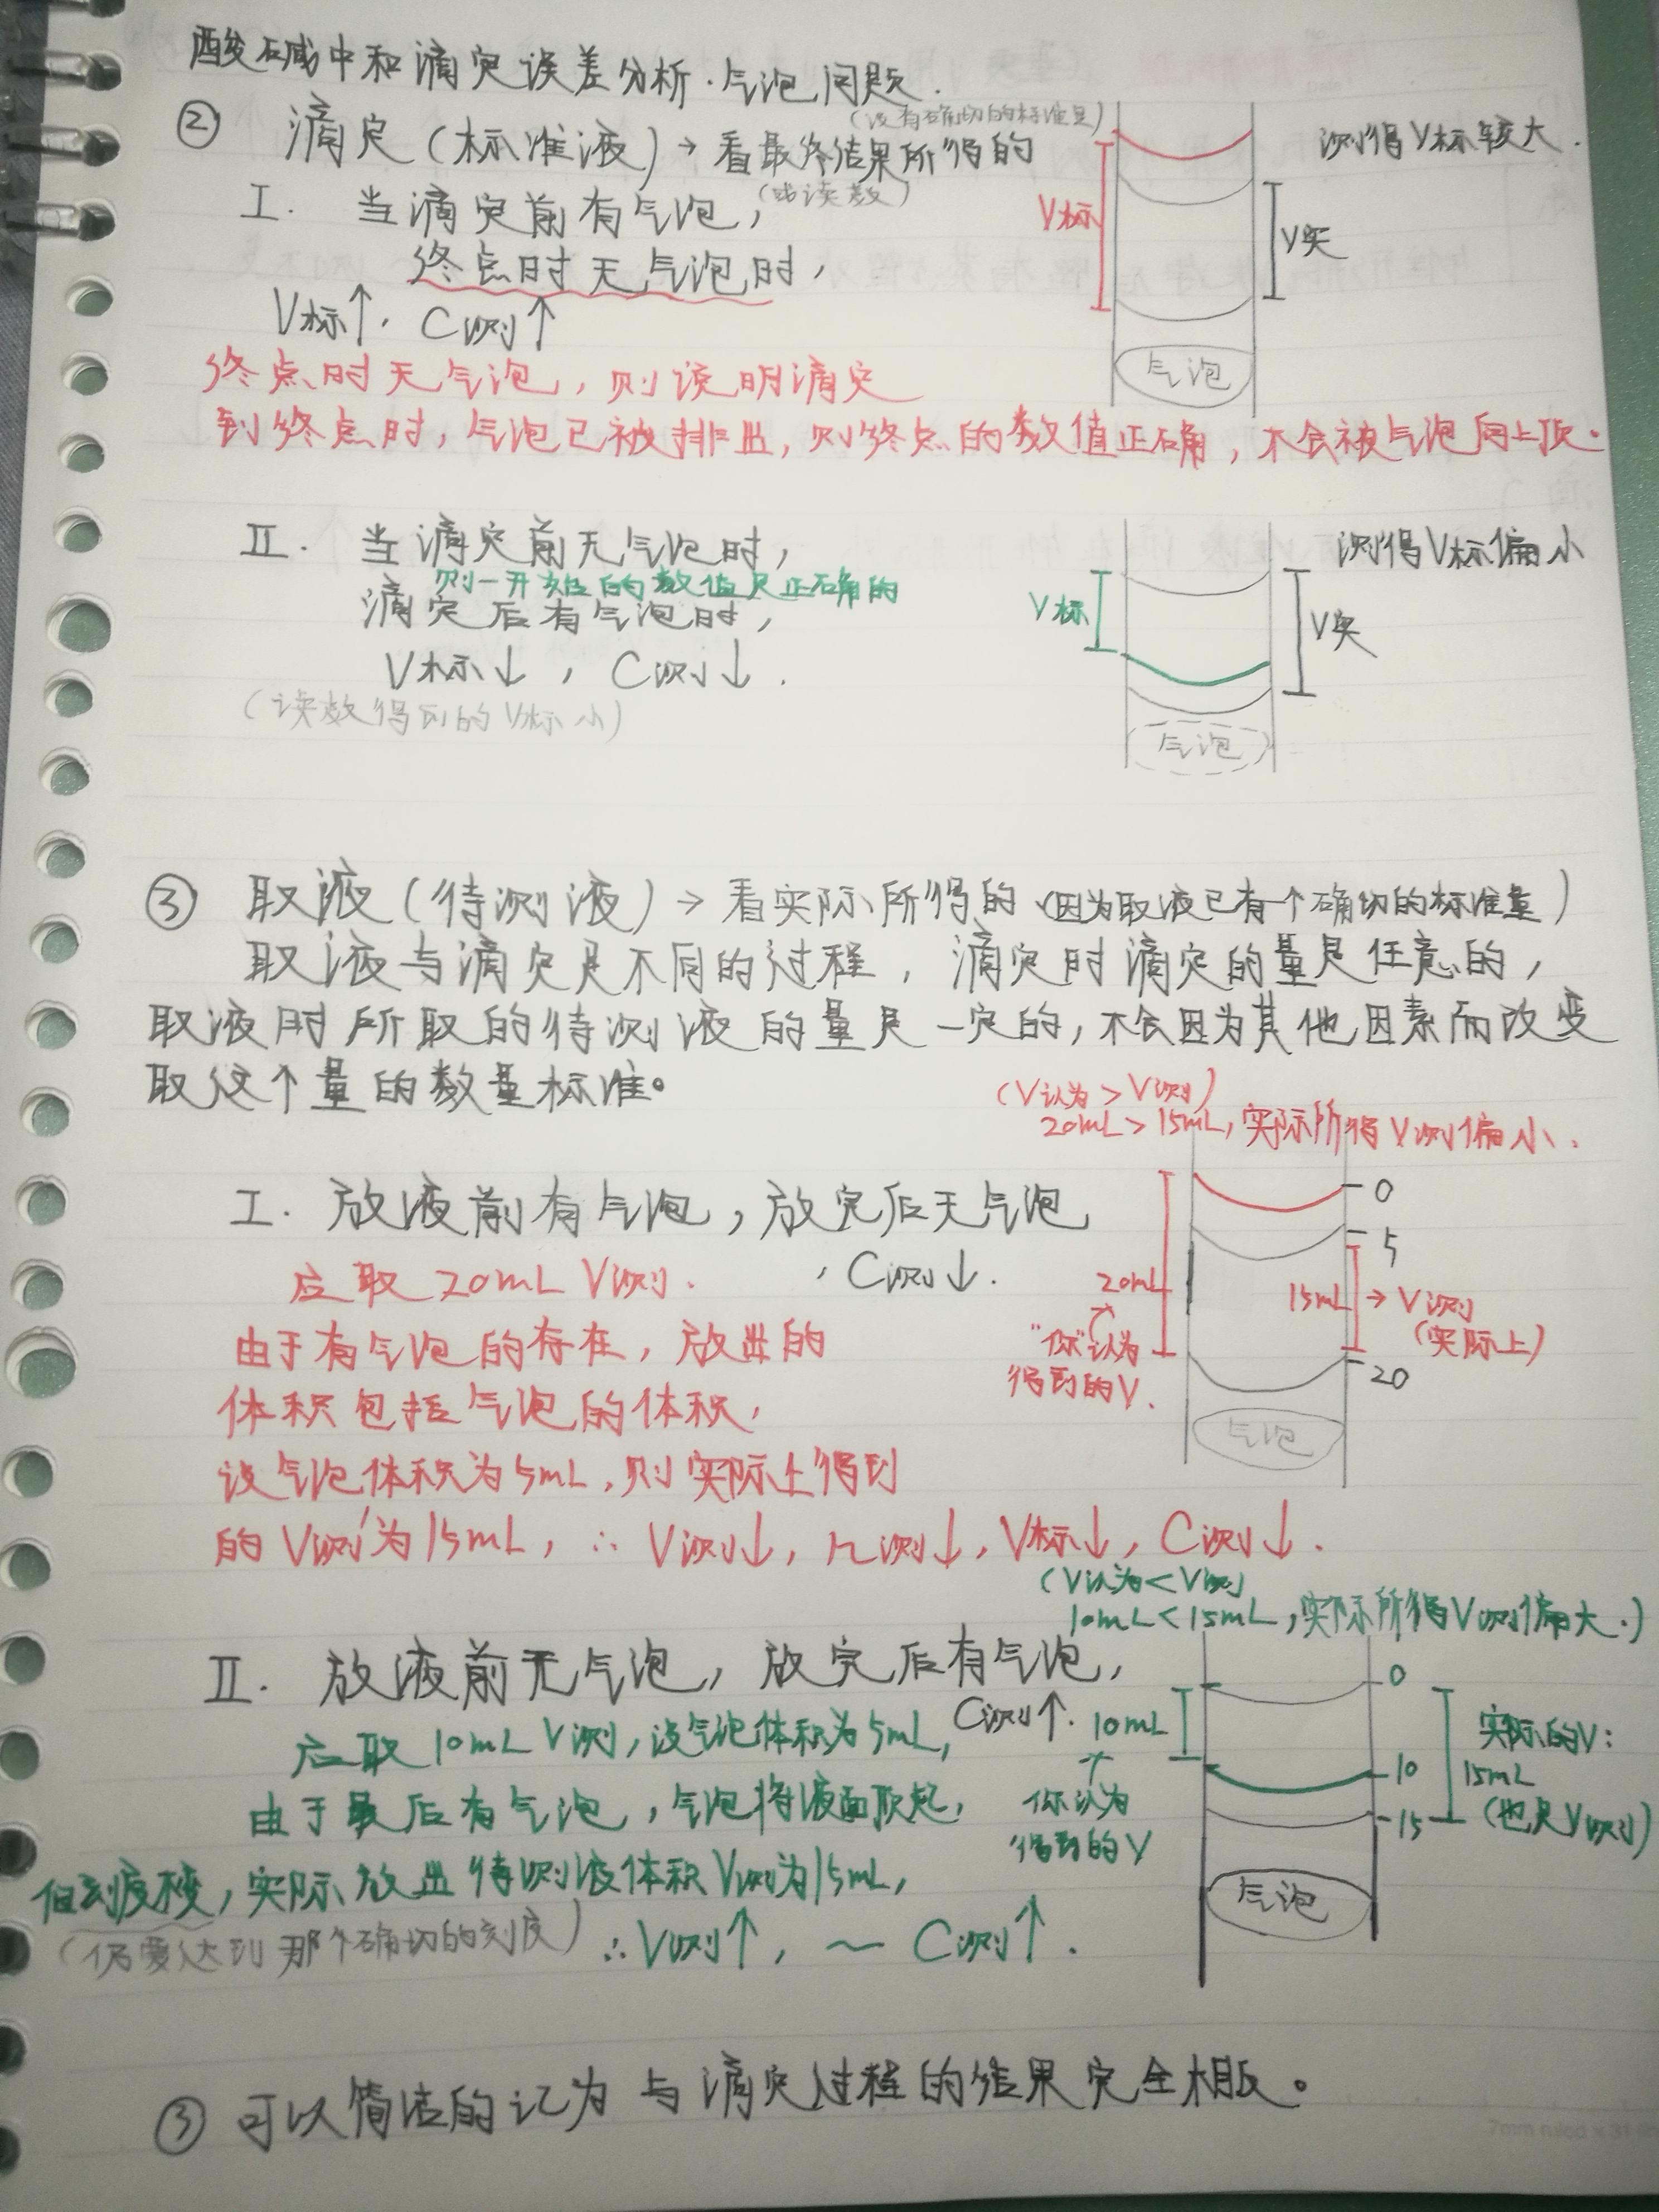 酸碱中和滴定误差分析·气泡问题.
② 滴定(标准液)→看最终结果所得的
(没有确切的标准量)
(或读数)
I. 当滴定前有气泡,
终点时无气泡时,
V标↑, C测↑
测得V标较大.
V标
V实
气泡
终点时无气泡, 则说明滴定
到终点时, 气泡已被排出, 则终点的数值正确, 不会被气泡向上顶.
II. 当滴定前无气泡时,
则一开始的数值是正确的
滴定后有气泡时,
V标↓, C测↓.
(读数得到的V标小)
测得V标偏小
V标
V实
气泡
③ 取液(待测液)→看实际所得的(因为取液已有一个确切的标准量)
取液与滴定是不同的过程, 滴定时滴定的量是任意的,
取液时所取的待测液的量是一定的, 不会因为其他因素而改变
取这个量的数量标准。
(V认为>V测)
20mL>15mL, 实际所得V测偏小.
I. 放液前有气泡, 放完后无气泡
, C测↓.
应取20mL V测.
由于有气泡的存在, 放出的
体积包括气泡的体积,
设气泡体积为5mL, 则实际上得到
的V测为15mL, ∴V测↓, n测↓, V标↓, C测↓.
0
5
20mL
15mL→V测
(实际上)
"你"认为
得到的V.
20
气泡
(V认为<V测
10mL<15mL, 实际所得V测偏大.)
II. 放液前无气泡, 放完后有气泡,
C测↑.
应取10mL V测, 设气泡体积为5mL,
由于最后有气泡, 气泡将液面顶起,
但刻度不变, 实际放出待测液体积V测为15mL,
(仍要达到那个确切的刻度)
∴V测↑, ~ C测↑.
0
10mL
你认为
得到的V
10
15
实际的V:
15mL
(也是V测)
气泡
③ 可以简洁的记为 与滴定过程的结果完全相反。